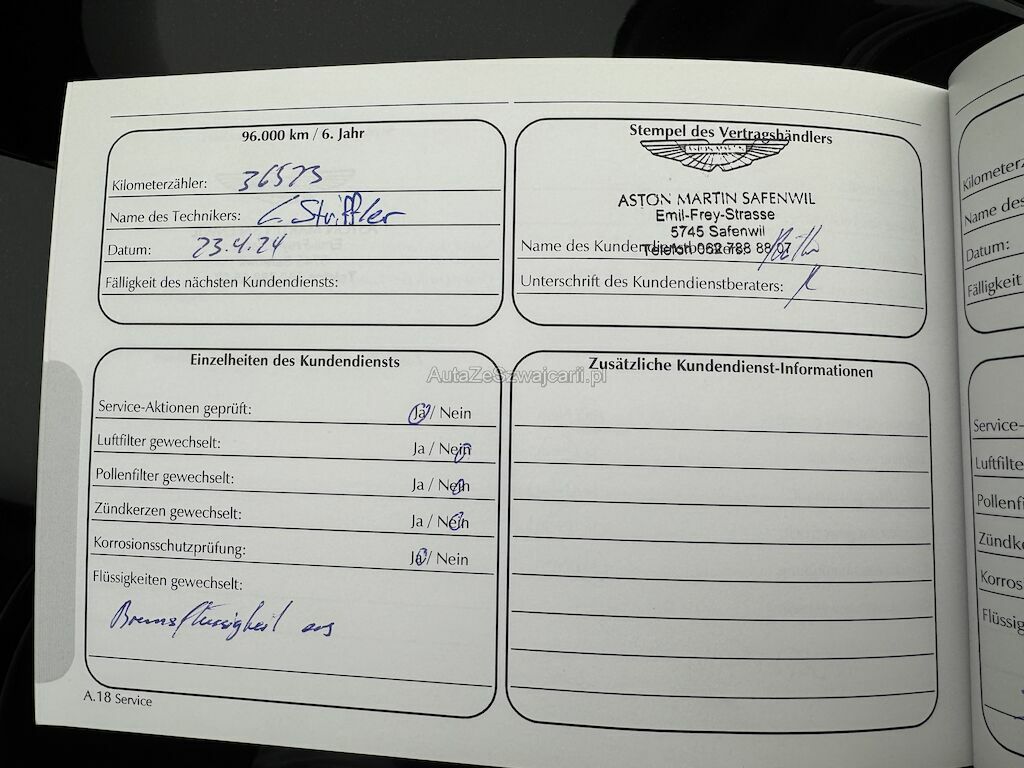 96.000 km / 6. Jahr
Kilometerzähler: 36573
Name des Technikers: C. Striffler
Datum: 23.4.24
Fälligkeit des nächsten Kundendiensts:
Stempel des Vertragshändlers
ASTON MARTIN
ASTON MARTIN SAFENWIL
Emil-Frey-Strasse
5745 Safenwil
Telefon 062 788 88 07
Name des Kundendienstberaters:
Unterschrift des Kundendienstberaters:
Einzelheiten des Kundendiensts
Service-Aktionen geprüft: Ja / Nein
Luftfilter gewechselt: Ja / Nein
Pollenfilter gewechselt: Ja / Nein
Zündkerzen gewechselt: Ja / Nein
Korrosionsschutzprüfung: Ja / Nein
Flüssigkeiten gewechselt:
Bremsflüssigkeit
Zusätzliche Kundendienst-Informationen
AutaZeSzwajcarii.pl
A.18 Service
Kilometerz
Name des
Datum:
Fälligkeit
Service-
Luftfilte
Pollenfi
Zündke
Korros
Flüssig